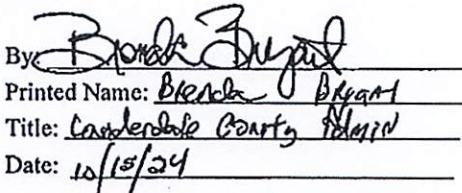 By: Brenda Bryant
Printed Name: Brenda Bryant
Title: Lauderdale County Admin
Date: 10/15/24